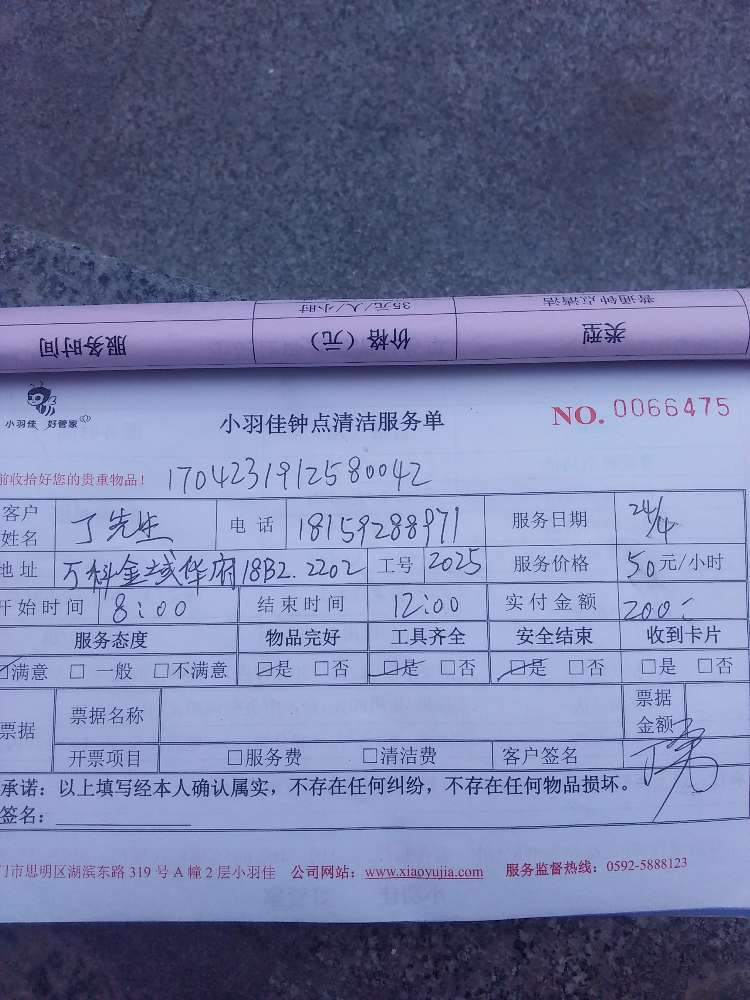 普通钟点清洁 35元/人/小时
类型 价格（元） 服务时间
小羽佳 好管家
小羽佳钟点清洁服务单 NO. 0066475
前收拾好您的贵重物品！ 1704231912580042
客户姓名 丁先生 电话 18159288971 服务日期 24/4
地址 万科金域华府18B2.2202 工号 2025 服务价格 50元/小时
开始时间 8：00 结束时间 12:00 实付金额 200
服务态度 物品完好 工具齐全 安全结束 收到卡片
☑满意 □ 一般 □不满意 ☑是 □否 ☑是 □否 ☑是 □否 □是 □否
票据 票据名称 票据金额
开票项目 □服务费 □清洁费 客户签名
承诺：以上填写经本人确认属实，不存在任何纠纷，不存在任何物品损坏。
签名：
门市思明区湖滨东路 319 号 A 幢 2 层小羽佳 公司网站：www.xiaoyujia.com 服务监督热线：0592-5888123